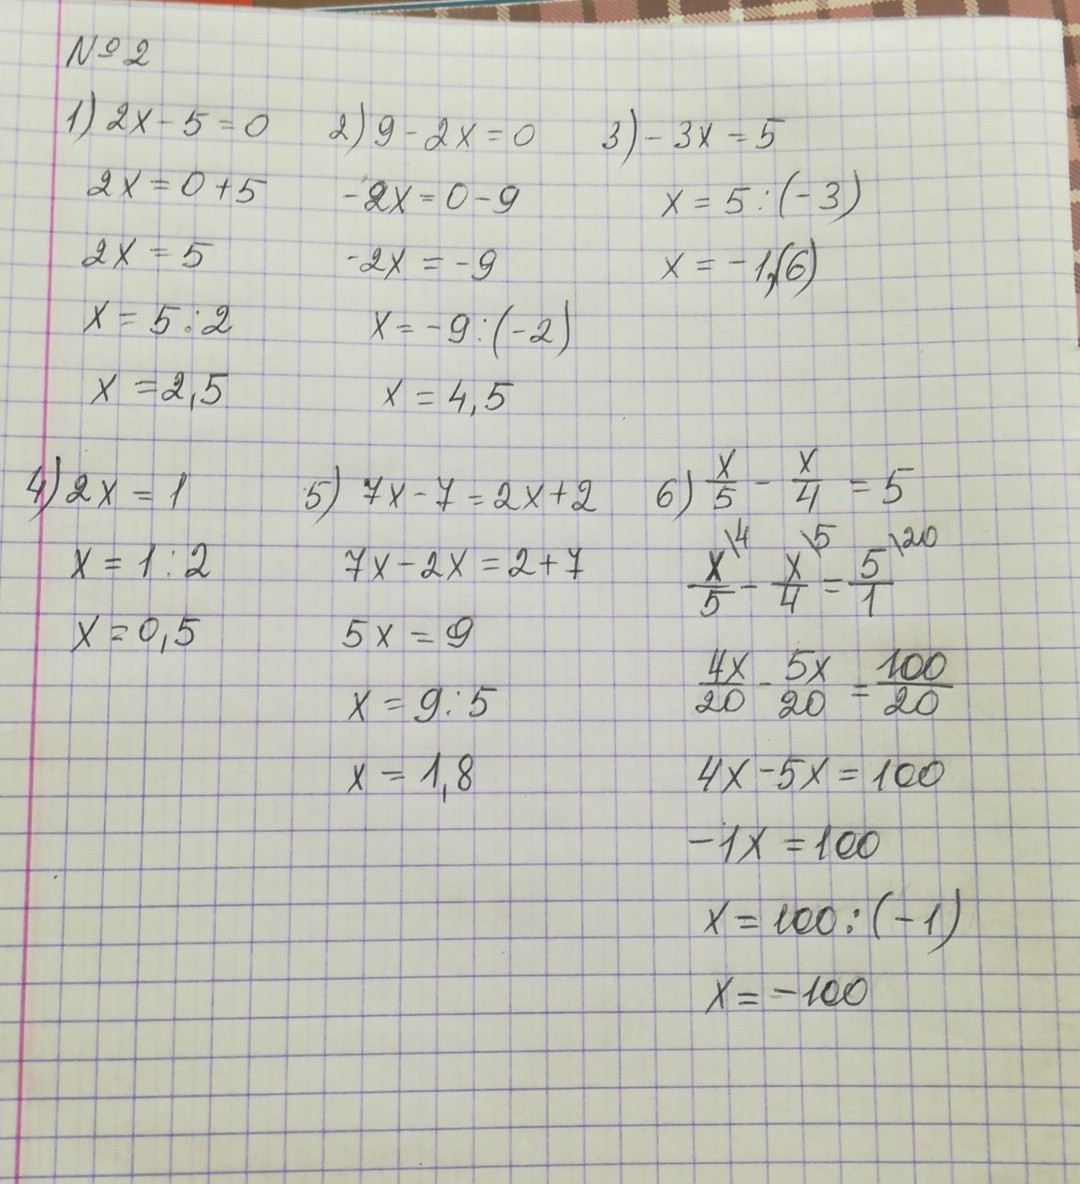 № 2
1) 2x - 5 = 0
2x = 0 + 5
2x = 5
x = 5 : 2
x = 2,5
2) 9 - 2x = 0
-2x = 0 - 9
-2x = -9
x = -9 : (-2)
x = 4,5
3) -3x = 5
x = 5 : (-3)
x = -1,(6)
4) 2x = 1
x = 1 : 2
x = 0,5
5) 7x - 7 = 2x + 2
7x - 2x = 2 + 7
5x = 9
x = 9 : 5
x = 1,8
6) x/5 - x/4 = 5
x\4/5 - x\5/4 = 5\20/1
4x/20 - 5x/20 = 100/20
4x - 5x = 100
-1x = 100
x = 100 : (-1)
x = -100